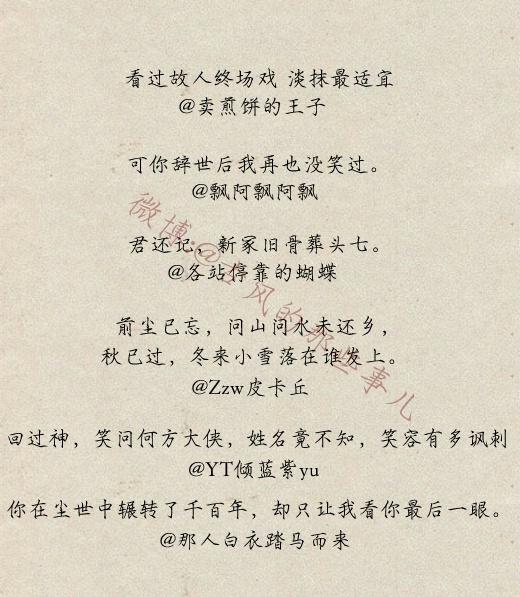 看过故人终场戏 淡抹最适宜
@卖煎饼的王子
可你辞世后我再也没笑过。
@飘阿飘阿飘
君还记，新冢旧骨葬头七。
@各站停靠的蝴蝶
前尘已忘，问山问水未还乡，
秋已过，冬来小雪落在谁发上。
@Zzw皮卡丘
回过神，笑问何方大侠，姓名竟不知，笑容有多讽刺
@YT倾蓝紫yu
你在尘世中辗转了千百年，却只让我看你最后一眼。
@那人白衣踏马而来
微博:@古风的那些事儿